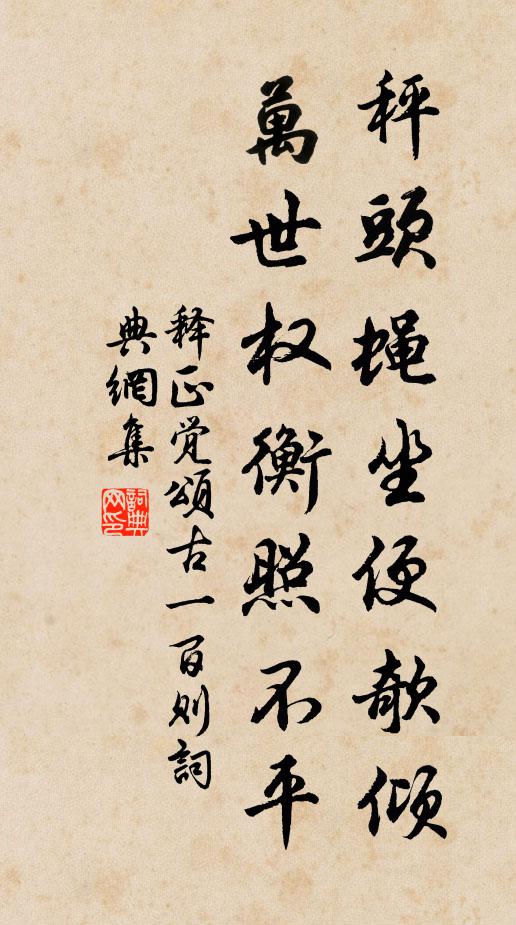 秤頭蝿坐便欹傾
萬世权衡照不平
释正覚頌古一百则詞
典網集
詞典网印